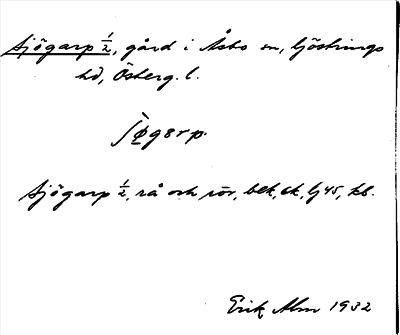 Sjögarp ½, gård i Åsbo sn, Göstrings
hd, Österg. l.
Sjögarp ½, rå och rör, bek, ek, lj 45, kb.
Erik Alm 1932